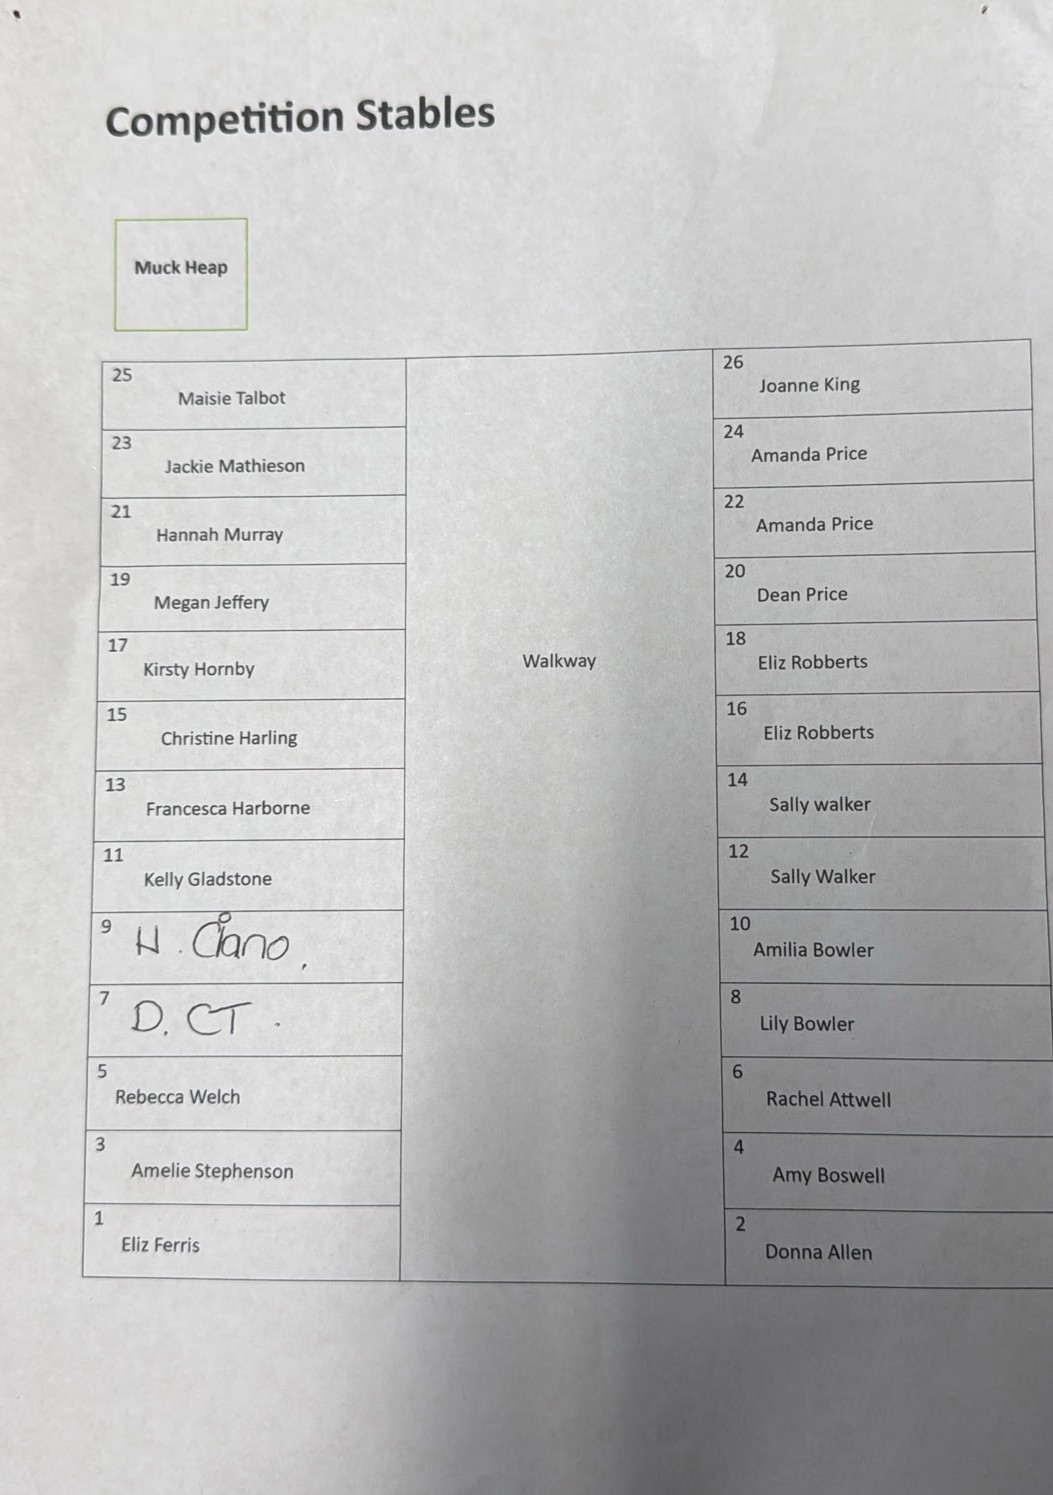 Competition Stables
Muck Heap
25
Maisie Talbot
23
Jackie Mathieson
21
Hannah Murray
19
Megan Jeffery
17
Kirsty Hornby
15
Christine Harling
13
Francesca Harborne
11
Kelly Gladstone
9
H. Ciano,
7
D. CT.
5
Rebecca Welch
3
Amelie Stephenson
1
Eliz Ferris
Walkway
26
Joanne King
24
Amanda Price
22
Amanda Price
20
Dean Price
18
Eliz Robberts
16
Eliz Robberts
14
Sally walker
12
Sally Walker
10
Amilia Bowler
8
Lily Bowler
6
Rachel Attwell
4
Amy Boswell
2
Donna Allen